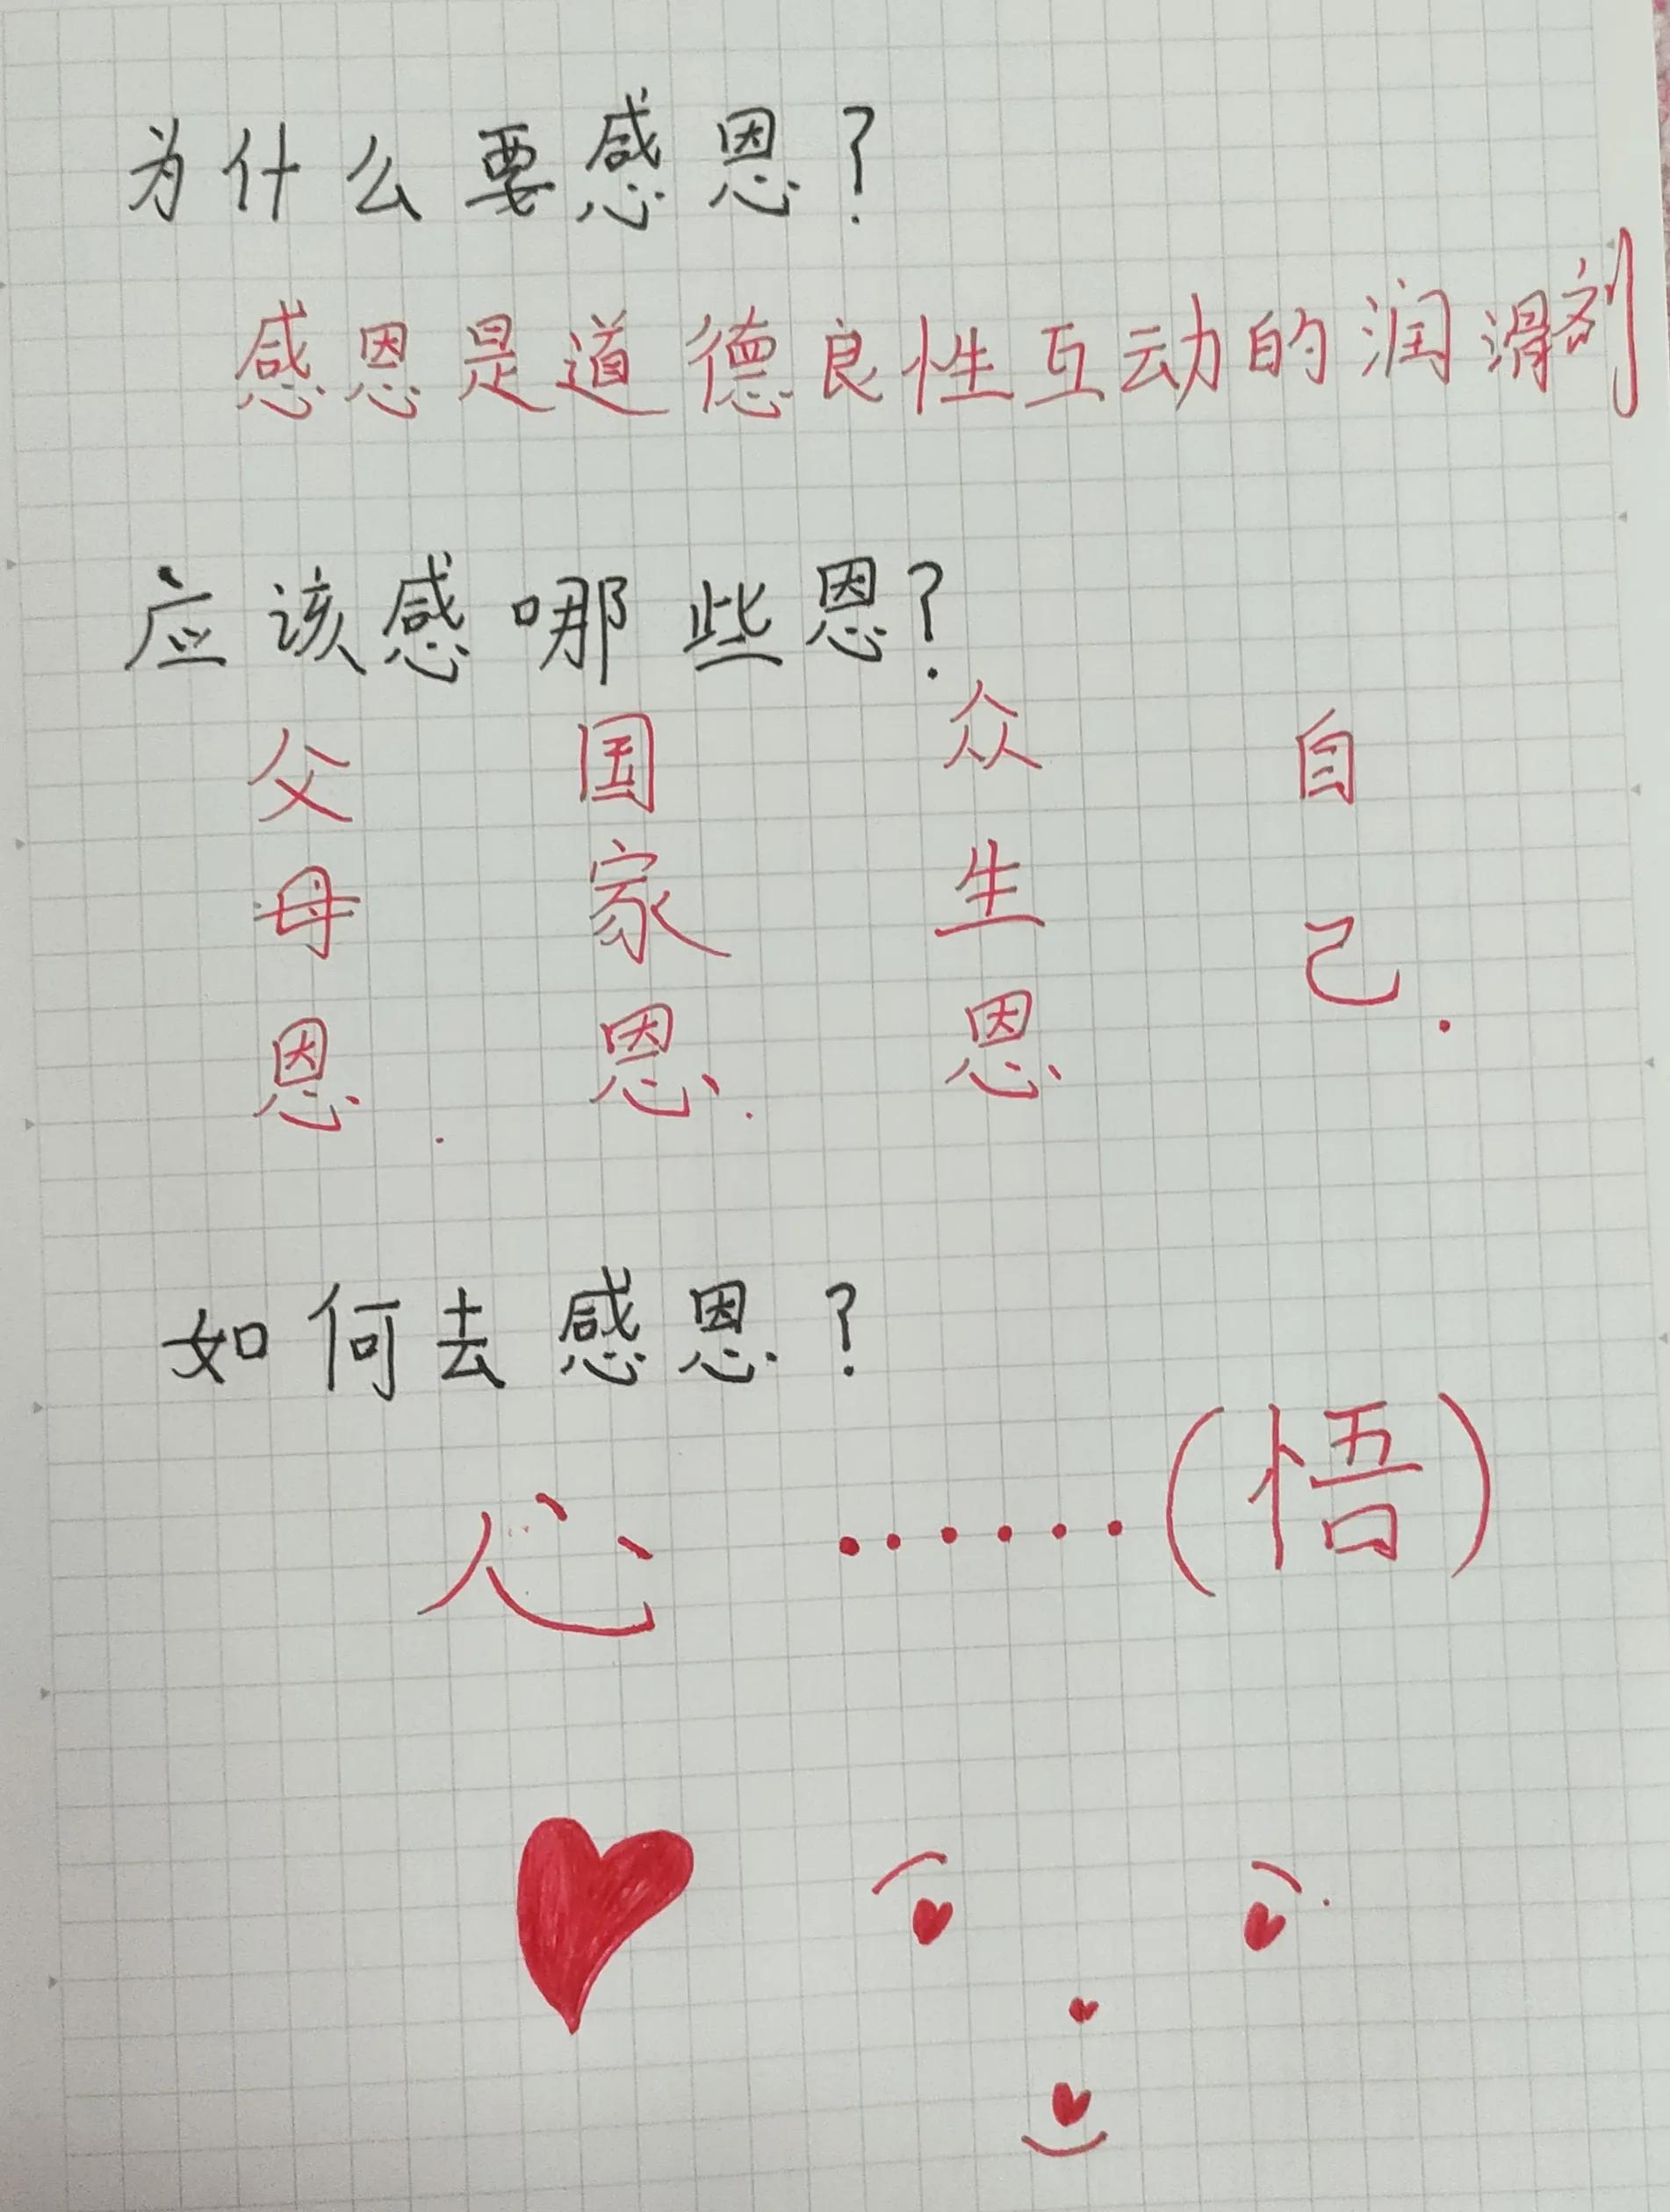 为什么要感恩?
感恩是道德良性互动的润滑剂
应该感哪些恩?
父母恩
国家恩
众生恩
自己.
如何去感恩?
心 ......(悟)